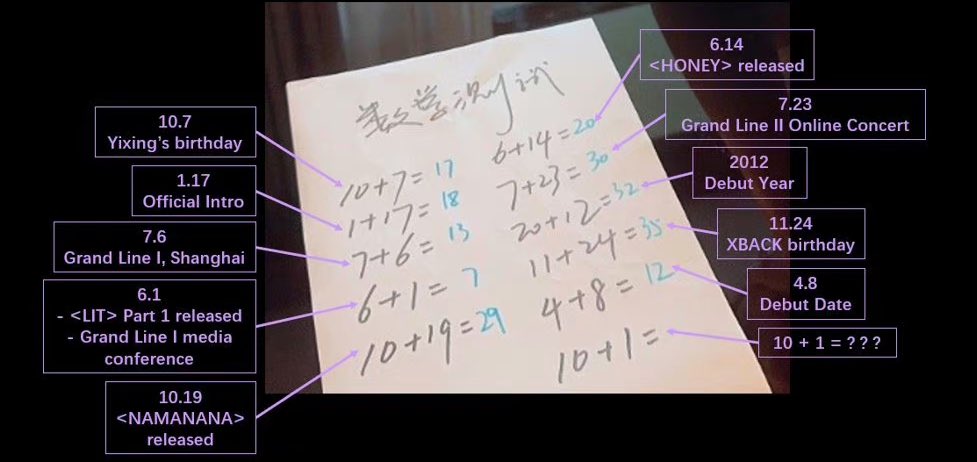 10.7
Yixing's birthday
1.17
Official Intro
7.6
Grand Line I, Shanghai
6.1
- <LIT> Part 1 released
- Grand Line I media
conference
10.19
<NAMANANA>
released
数学测试
10+7=17
1+17=18
7+6=13
6+1=7
10+19=29
6+14=20
7+23=30
20+12=32
11+24=35
4+8=12
10+1=
6.14
<HONEY> released
7.23
Grand Line II Online Concert
2012
Debut Year
11.24
XBACK birthday
4.8
Debut Date
10 + 1 = ???